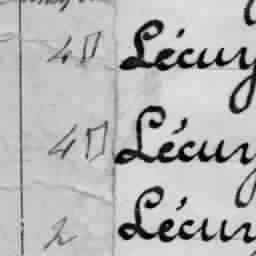 4 Lécuy
4 Lécuy
2 Lécuy